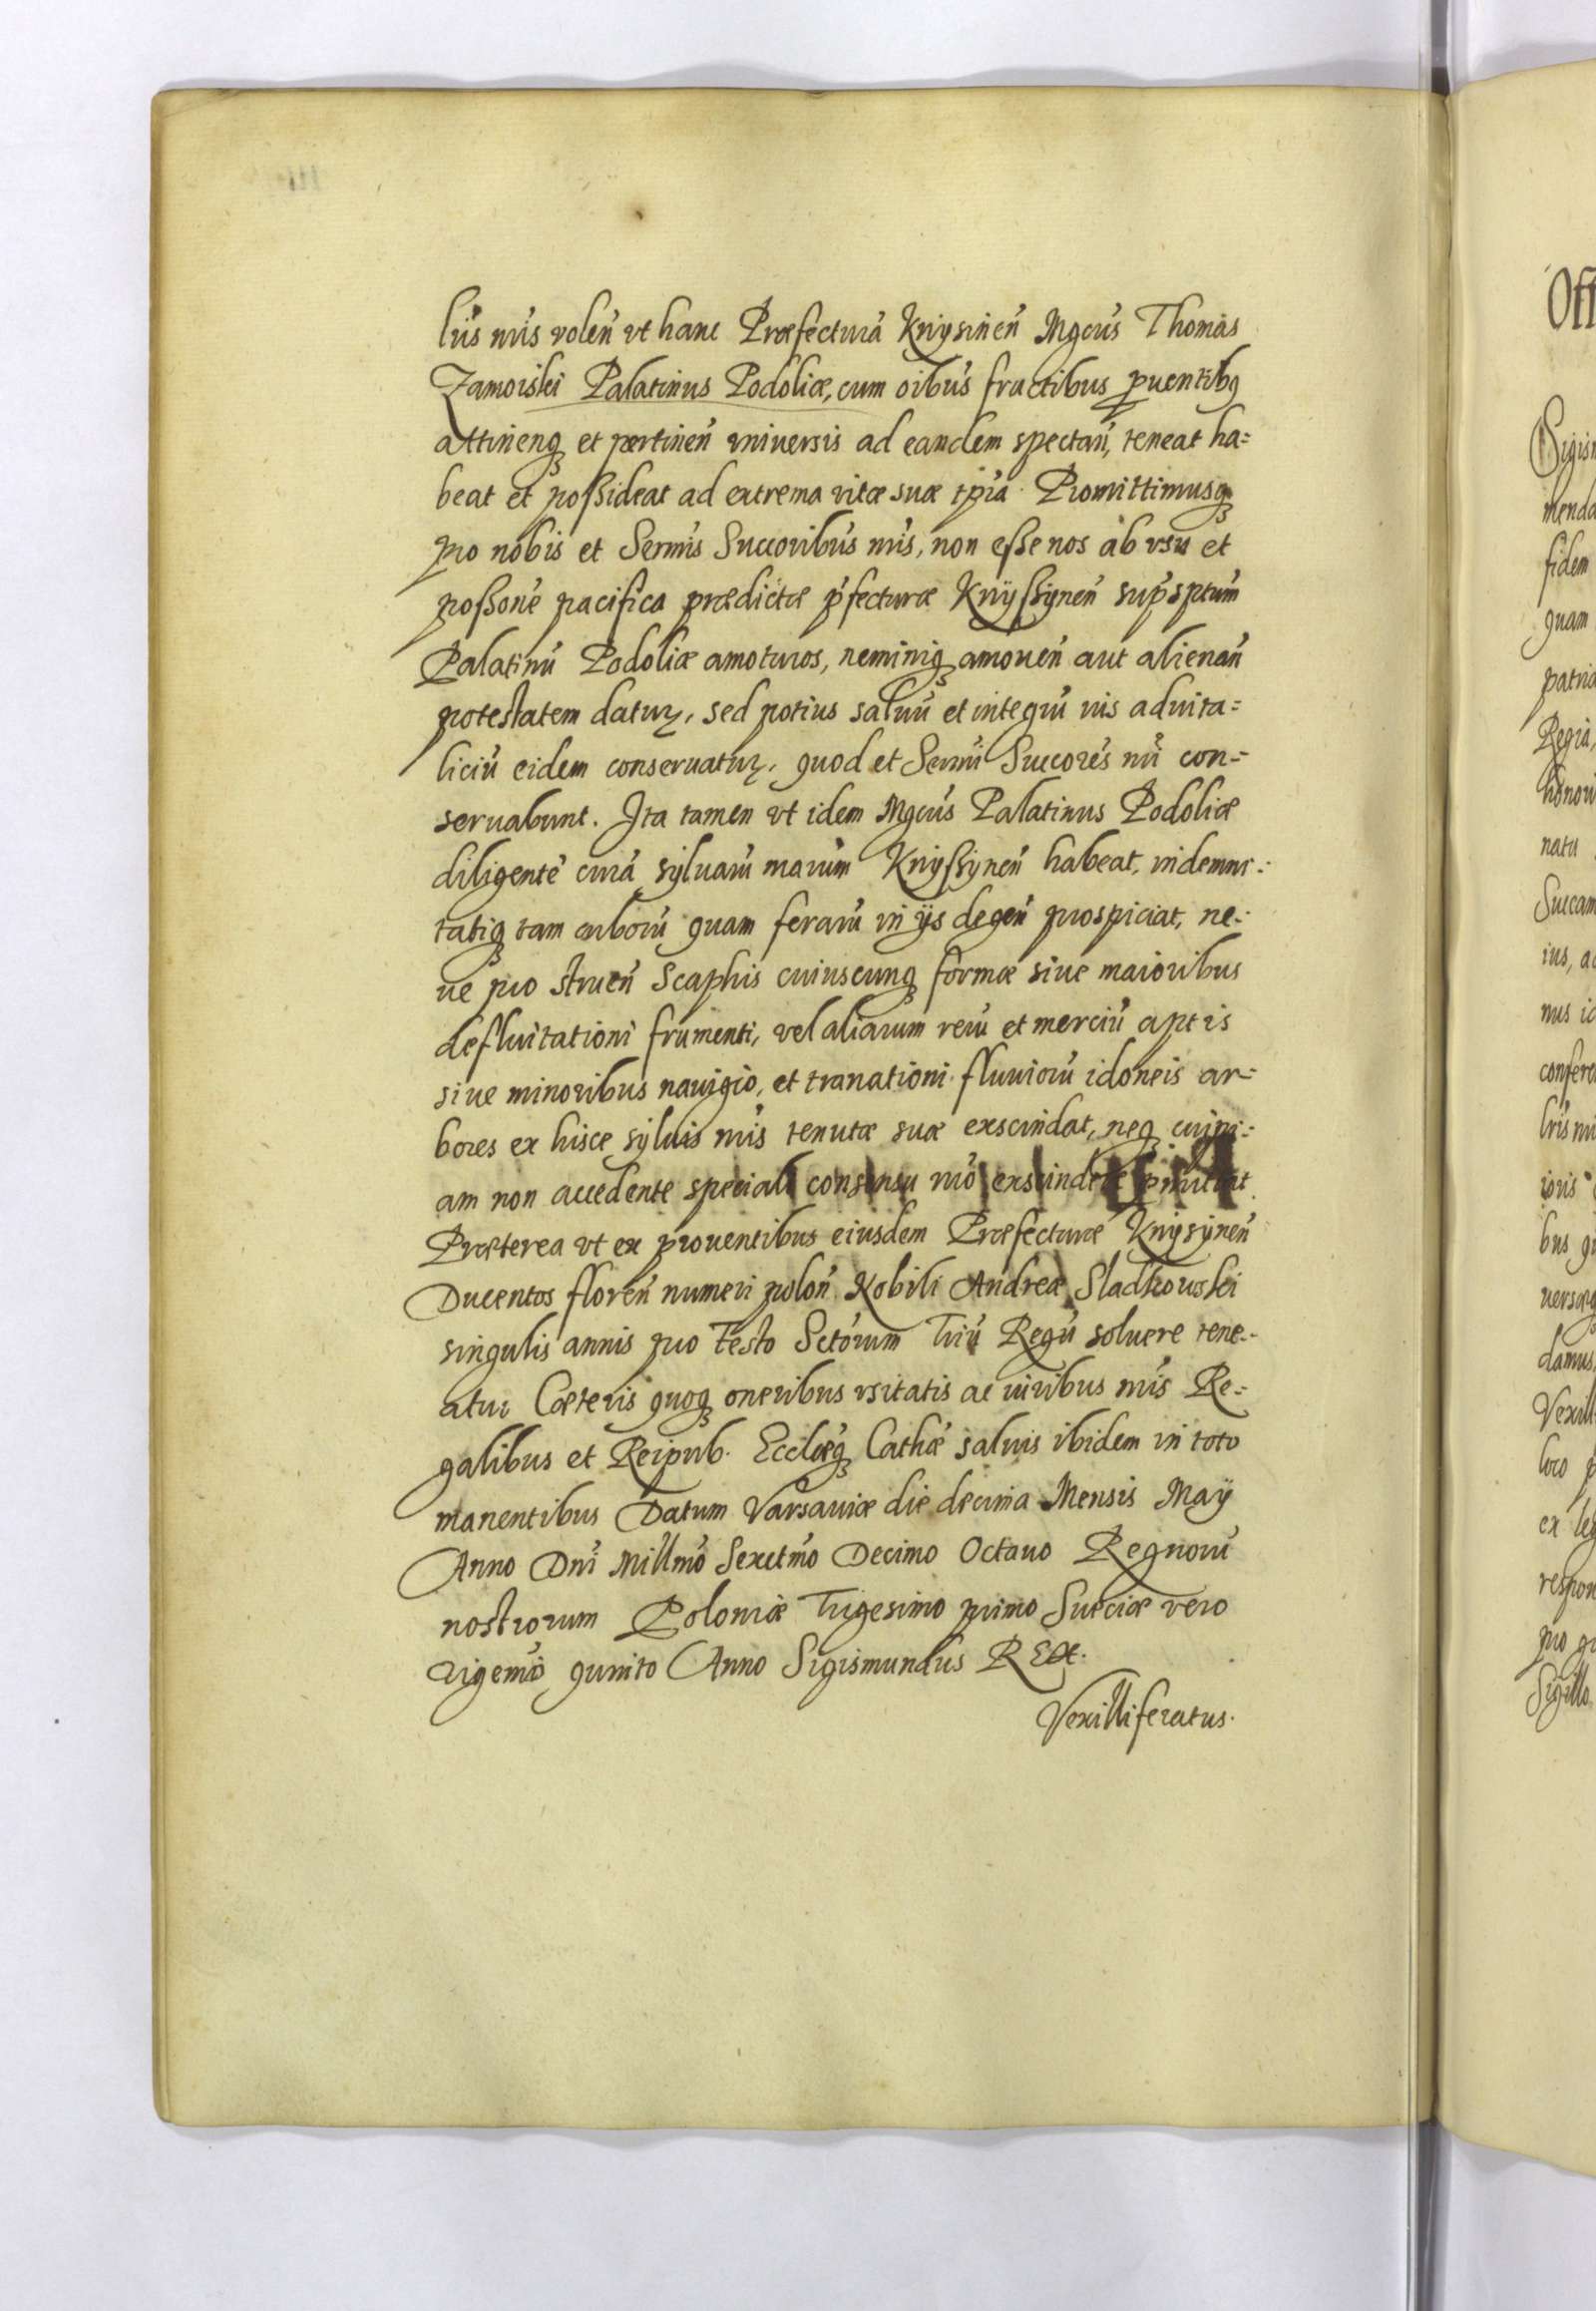 lis nris volen vt hanc Præfecturã Knysinen Mgcus Thomas
Zamoiski Palatinus Podoliæ, cum oibus fructibus puentibq
attinenq et pertinen vniuersis ad eandem spectan, teneat ha=
beat et possideat ad extrema vitæ suæ tpra. Promittimusq
pro nobis et Sermis Succoribus nris, non esse nos ab vsu et
possone pacifica prædictæ pfecturæ Knyssynen supsptum
Palatinu Podoliæ amoturos, neminiq amouen aut alienan
potestatem datur, sed potius saluu et integru ius aduita=
liciu eidem conseruatur, quod et Sermi Succores nri con=
seruabunt. Ita tamen vt idem Mgcus Palatinus Podoliæ
diligente cura syluaru nrarum Knyssynen habeat, indemni=
tatiq tam arboru quam feraru in ijs degen prospiciat, ne=
ue pro struen Scaphis cuiuscunq formæ siue maioribus
defluitationi frumenti, vel aliarum reru et merciu aptis
siue minoribus nauigio, et tranationi fluuioru idoneis ar=
bores ex hisce syluis nris tenutæ suæ exscindat, neq cuipi=
am non accedente speciali consensu nro exscindere pmittat.
Præterea vt ex prouentibus eiusdem Præfecturæ Knysynen
Ducentos floren numeri polon Nobili Andreæ Sladkowski
singulis annis pro Festo Sctorum Triu Regu soluere tene=
atur Cæteris quoq oneribus vsitatis ac iuribus nris Re=
galibus et Reipub. Eccliæq Cathæ saluis ibidem in toto
manentibus Datum Varsauiæ die decima Mensis Maÿ
Anno Dni Millmo Sexctmo Decimo Octauo Regnoru
nostrorum Poloniæ Trigesimo primo Sueciæ vero
vigemo quinto Anno Sigismundus REX.
Vexilliferatus.